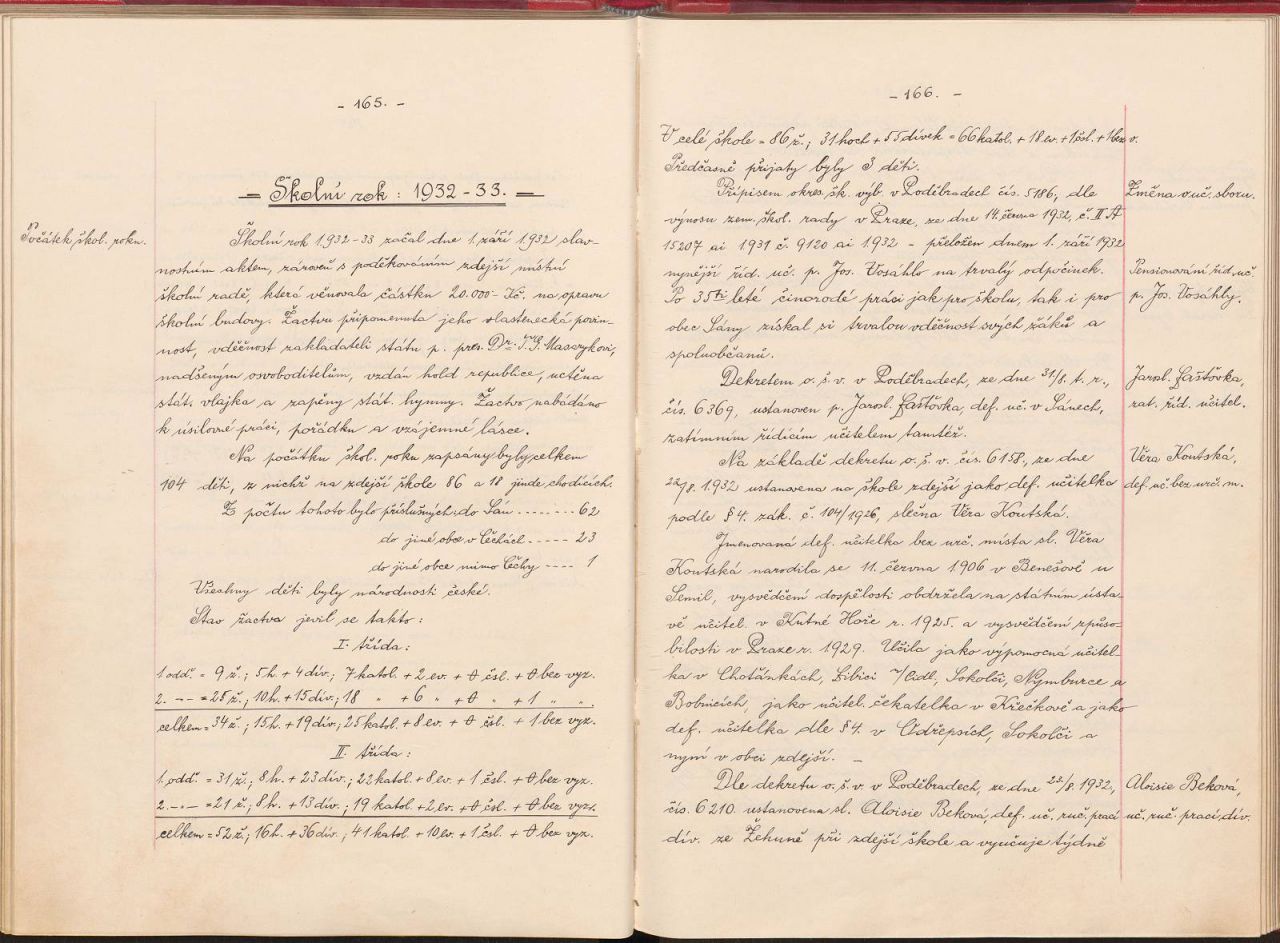 - 165. -
= Školní rok: 1932-33. =
Počátek škol. roku.
Školní rok 1932-33 začal dne 1. září 1932 slav-
nostním aktem, zároveň s poděkováním zdejší místní
školní radě, která věnovala částku 20.000·- Kč. na opravu
školní budovy. Žactvu připomenuta jeho vlastenecká povin-
nost, vděčnost zakladateli státu p. pres. Dr. T. G. Masarykovi,
nadšeným osvoboditelům, vzdán hold republice, uctěna
stát. vlajka a zapěny stát. hymny. Žactvo nabádáno
k úsilovné práci, pořádku a vzájemné lásce.
Na počátku škol. roku zapsány byly celkem
104 děti, z nichž na zdejší škole 86 a 18 jinde chodících.
Z počtu tohoto bylo příslušných do Sán ........ 62
do jiné obce v Čechách ..----- 23
do jiné obce mimo Čechy ---- 1
Všechny děti byly národnosti české.
Stav žactva jevil se takto:
I. třída:
1. odd. = 9 ž.; 5 h. + 4 dív.; 7 katol. + 2 ev. + 0 čsl. + 0 bez vyz.
2. -·- = 25 ž.; 10 h. + 15 dív.; 18 " + 6 " + 0 " + 1 " ".
celkem = 34 ž.; 15 h. + 19 dív.; 25 katol. + 8 ev. + 0 čsl. + 1 bez vyz.
II. třída:
1. odd. = 31 ž.; 8 h. + 23 dív.; 22 katol. + 8 ev. + 1 čsl. + 0 bez vyz.
2. -·- = 21 ž.; 8 h. + 13 dív.; 19 katol. + 2 ev. + 0 čsl. + 0 bez vyz.
celkem = 52 ž.; 16 h. + 36 dív.; 41 katol. + 10 ev. + 1 čsl. + 0 bez vyz.
- 166. -
V celé škole = 86 ž.; 31 hoch + 55 dívek = 66 katol. + 18 ev. + 1 čsl. + 1 bez v.
Předčasně přijaty byly 3 děti.
Přípisem okres. šk. výb. v Poděbradech čís. 5186, dle
Změna v uč. sboru.
výnosu zem. škol. rady v Praze, ze dne 14. června 1932, č. II A
15207 ai 1931 č. 9120 ai 1932 - přeložen dnem 1. září 1932
nynější říd. uč. p. Jos. Vosáhlo na trvalý odpočinek.
Pensionování říd. uč.
Po 35ti leté činorodé práci jak pro školu, tak i pro
p. Jos. Vosáhly.
obec Sány získal si trvalou vděčnost svých žáků a
spoluobčanů.
Dekretem o. š. v. v Poděbradech, ze dne 31/8. t. r.,
Jarosl. Fašťovka,
čís. 6369, ustanoven p. Jarosl. Fašťovka, def. uč. v Sánech,
zat. říd. učitel.
zatímním řídícím učitelem tamtéž.
Na základě dekretu o. š. v. čís. 6158, ze dne
Věra Koutská,
22/8. 1932 ustanovena na škole zdejší jako def. učitelka
def. uč. bez urč. m.
podle § 4. zák. č. 104/1926, slečna Věra Koutská.
Jmenovaná def. učitelka bez urč. místa sl. Věra
Koutská narodila se 11. června 1906 v Benešově u
Semil, vysvědčení dospělosti obdržela na státním ústa-
vě učitel. v Kutné Hoře r. 1925. a vysvědčení způso-
bilosti v Praze r. 1929. Učila jako výpomocná učitel-
ka v Chotánkách, Libici n/Cidl., Sokolči, Nymburce a
Bobnicích, jako učitel. čekatelka v Křečkově a jako
def. učitelka dle § 4. v Odřepsích, Sokolči a
nyní v obci zdejší. -
Dle dekretu o. š. v. v Poděbradech, ze dne 23/8. 1932,
Aloisie Beková,
čís. 6210. ustanovena sl. Aloisie Beková, def. uč. ruč. prací
uč. ruč. prací dív.
dív. ze Žehuně při zdejší škole a vyučuje týdně